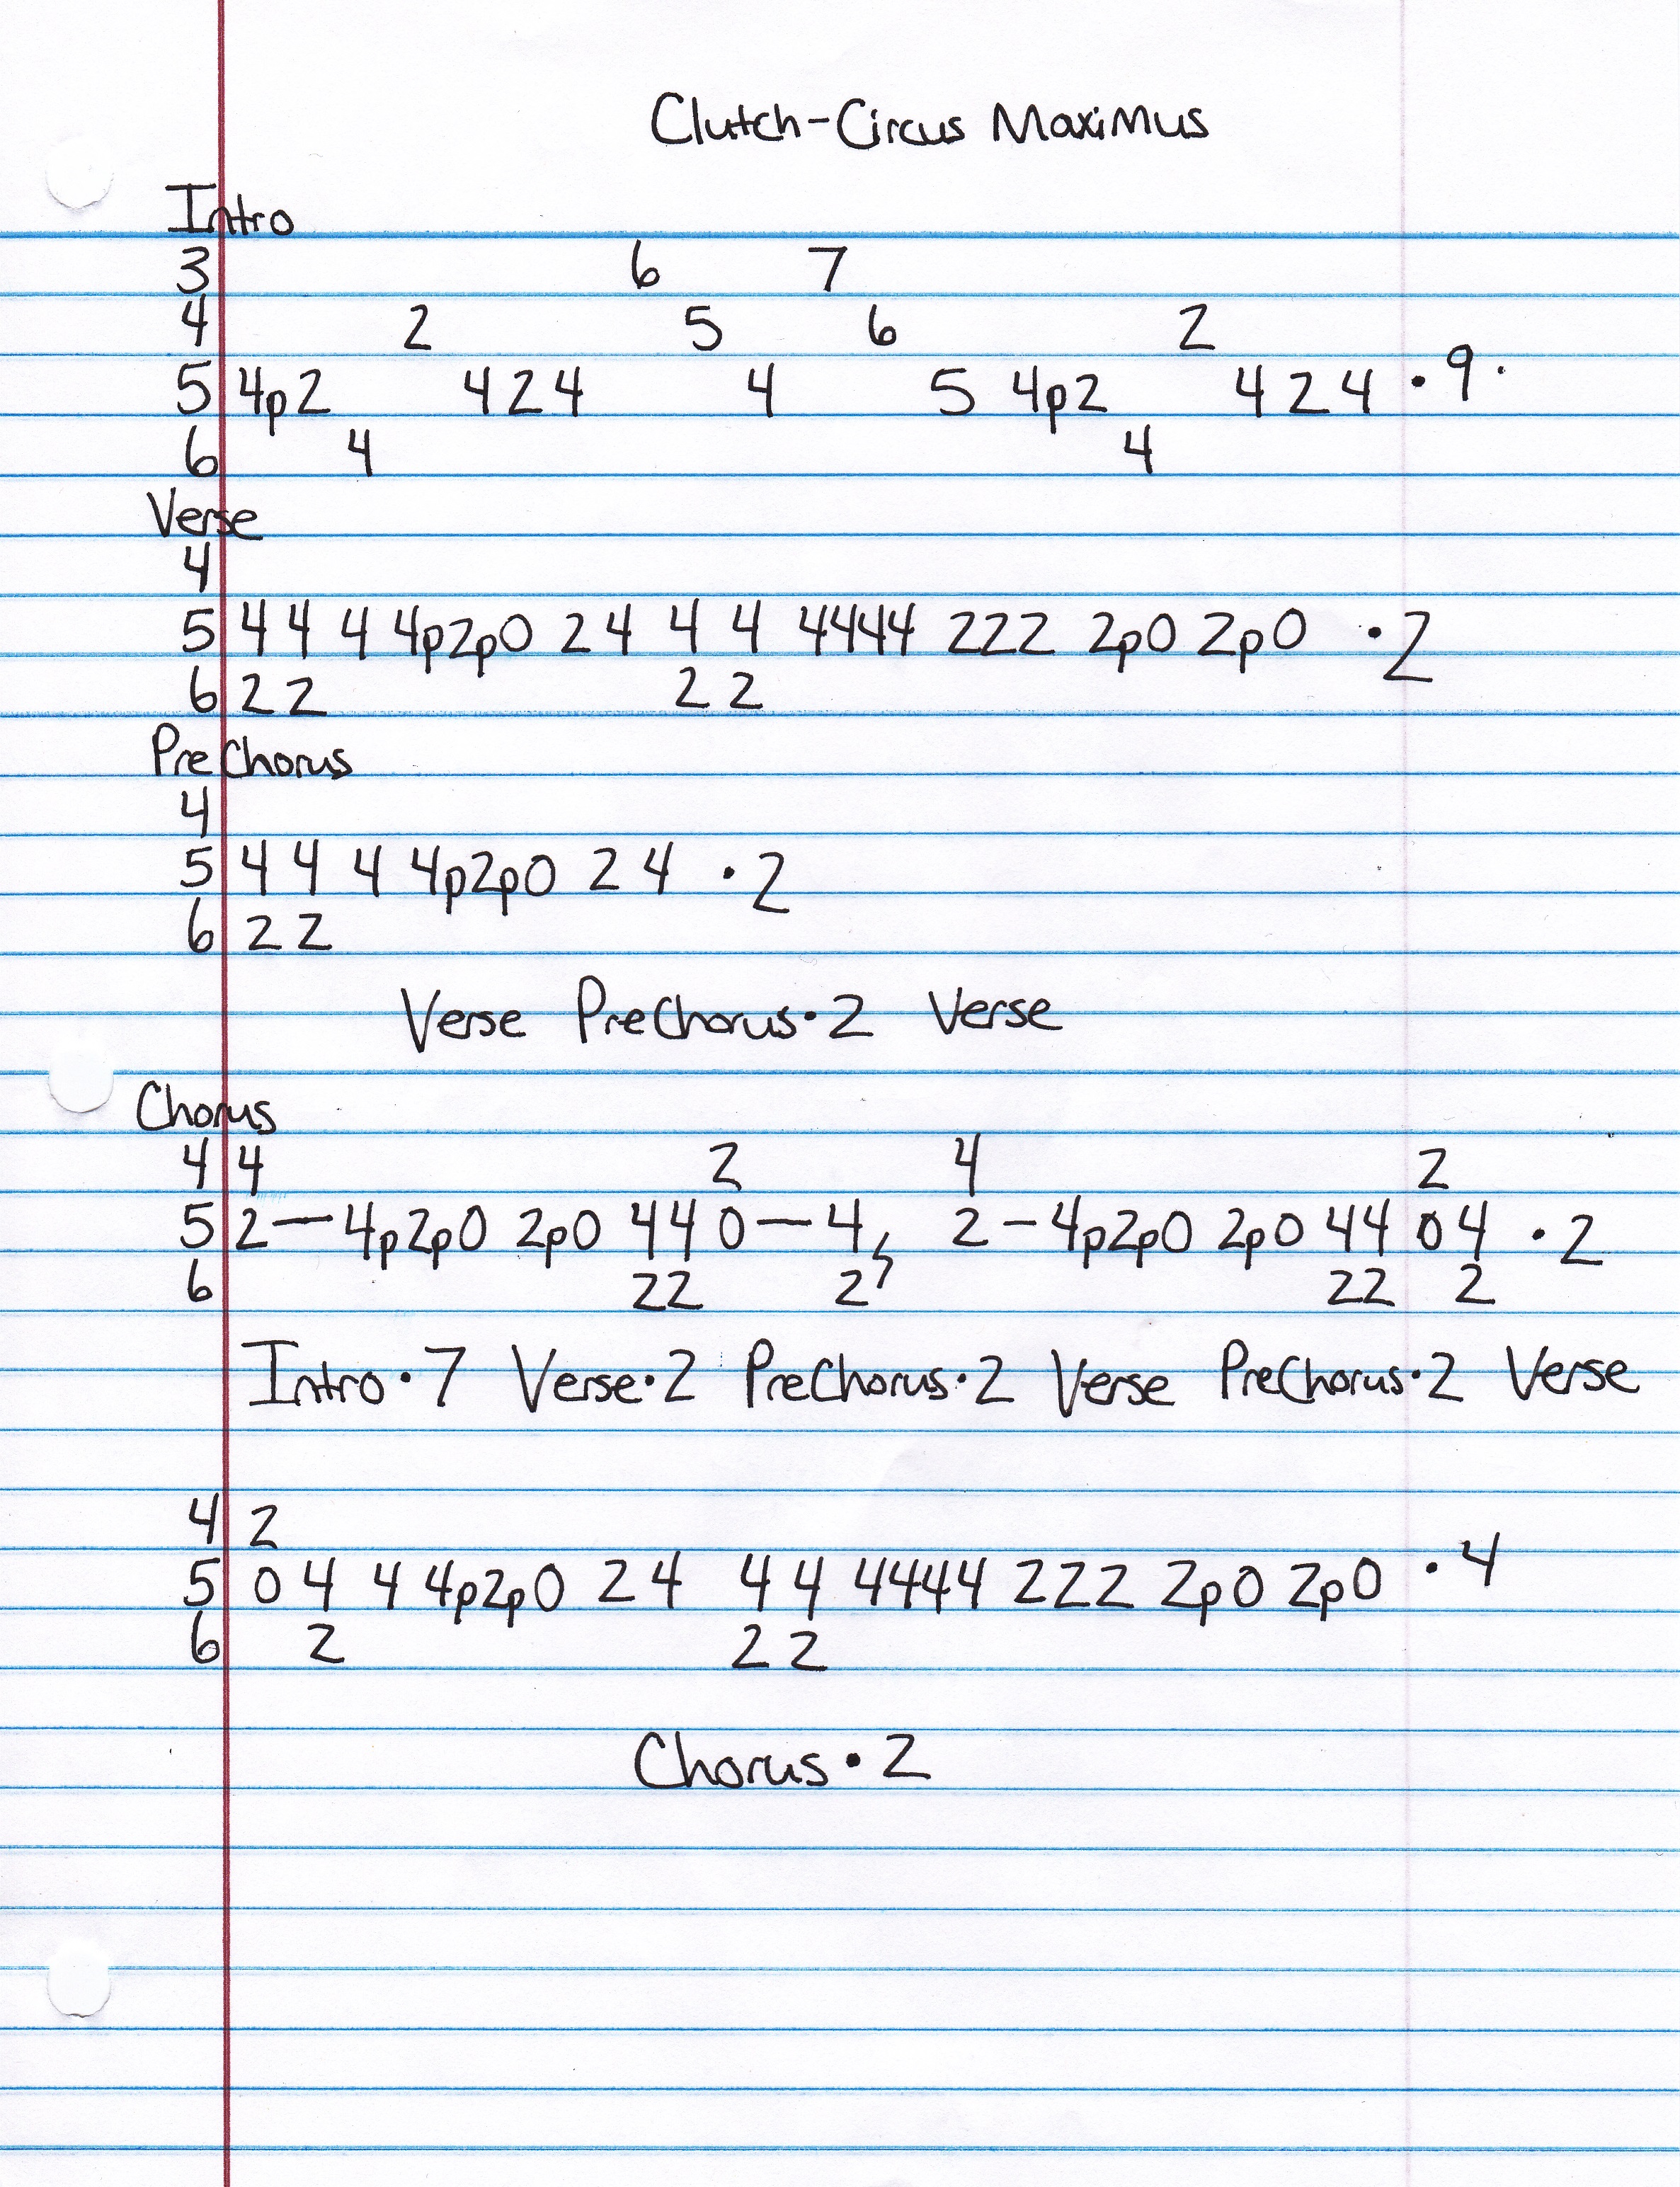 Clutch-Circus Maximus
Intro
3 6 7
4 2 5 6 2
5 4p2 4 2 4 4 5 4p2 4 2 4 • 9 •
6 4 4
Verse
4
5 4 4 4 4p2p0 2 4 4 4 4444 222 2p0 2p0 • 2
6 2 2 2 2
PreChorus
4
5 4 4 4 4p2p0 2 4 • 2
6 2 2
Verse PreChorus • 2 Verse
Chorus
4 4 2 4 2
5 2 — 4p2p0 2p0 4 4 0 — 4, 2 - 4p2p0 2p0 44 0 4 • 2
6 22 2 22 2
Intro • 7 Verse • 2 PreChorus • 2 Verse PreChorus • 2 Verse
4 2
5 0 4 4 4p2p0 2 4 4 4 4444 222 2p0 2p0 • 4
6 2 2 2
Chorus • 2